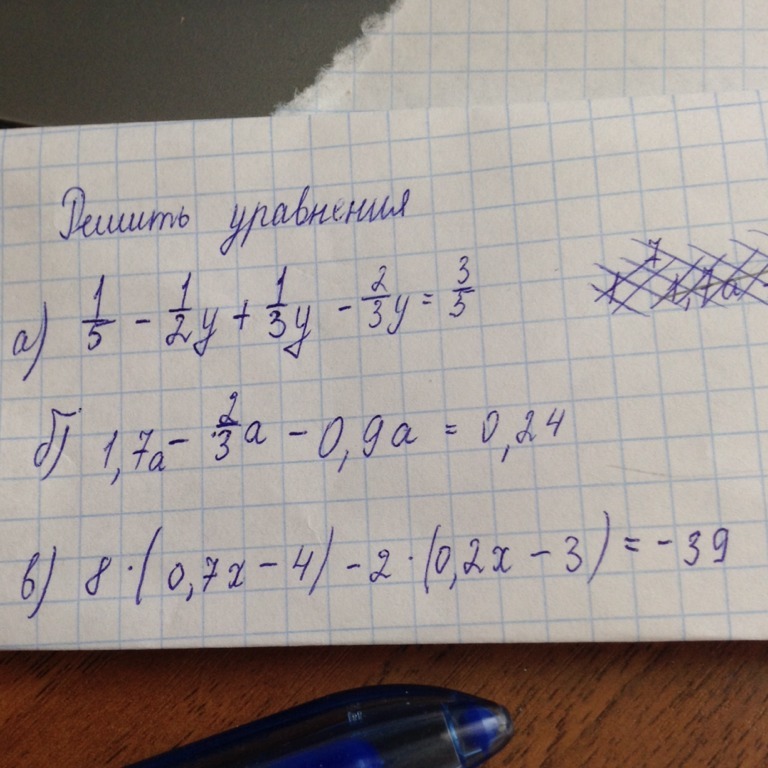 Решить уравнения
а) 1/5 - 1/2 y + 1/3 y - 2/3 y = 3/5
б) 1,7a - 2/3 a - 0,9a = 0,24
в) 8 · (0,7x - 4) - 2 · (0,2x - 3) = - 39